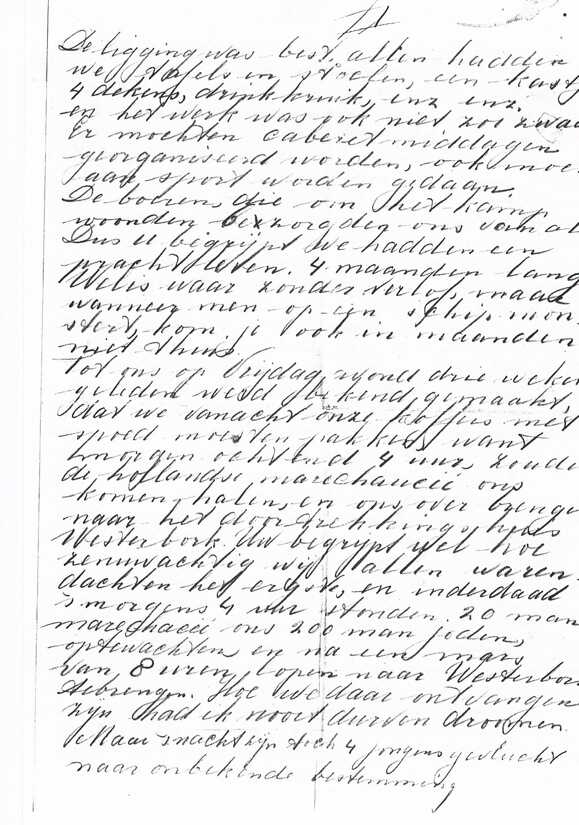 De ligging was best. allen hadden
we tafels en stoelen, een kast,
4 dekens, drinkkruik, enz enz.
en het werk was ook niet zoo zwaar
Er mochten cabaret middagen
georganiseerd worden, ook moest
aan sport worden gedaan.
De boeren, die om het kamp
woonden bezzorgden ons van al
Dus U begrijpt we hadden een
pracht leven. 4 maanden lang
Welis waar zonder verlof, maar
wanneer men op een schip mon
stert, kom je ook in maanden
niet thuis
Tot ons op Vrijdag avond drie weken
geleden werd bekend gemaakt,
dat we vanacht onze koffers met
spoed moesten pakken want
morgen ochtend 4 uur, zoude
de hollandse marechaucee ons
komen halen, en ons over brengen
naar het doortrekkings huis
Westerbork. Uw begrypt wel hoe
zenuwachtig wij allen waren.
dachten het ergste, en inderdaad
's morgens 4 uur stonden 20 man
marechaceé ons 200 man joden,
optewachten, en na een mars
van 8 uren lopen naar Westerbork
tebrengen. Hoe we daar ontvangen
zyn had ik nooit durven droomen.
Maar s'nachts zyn toch 4 jongens gevlucht
naar onbekende bestemming